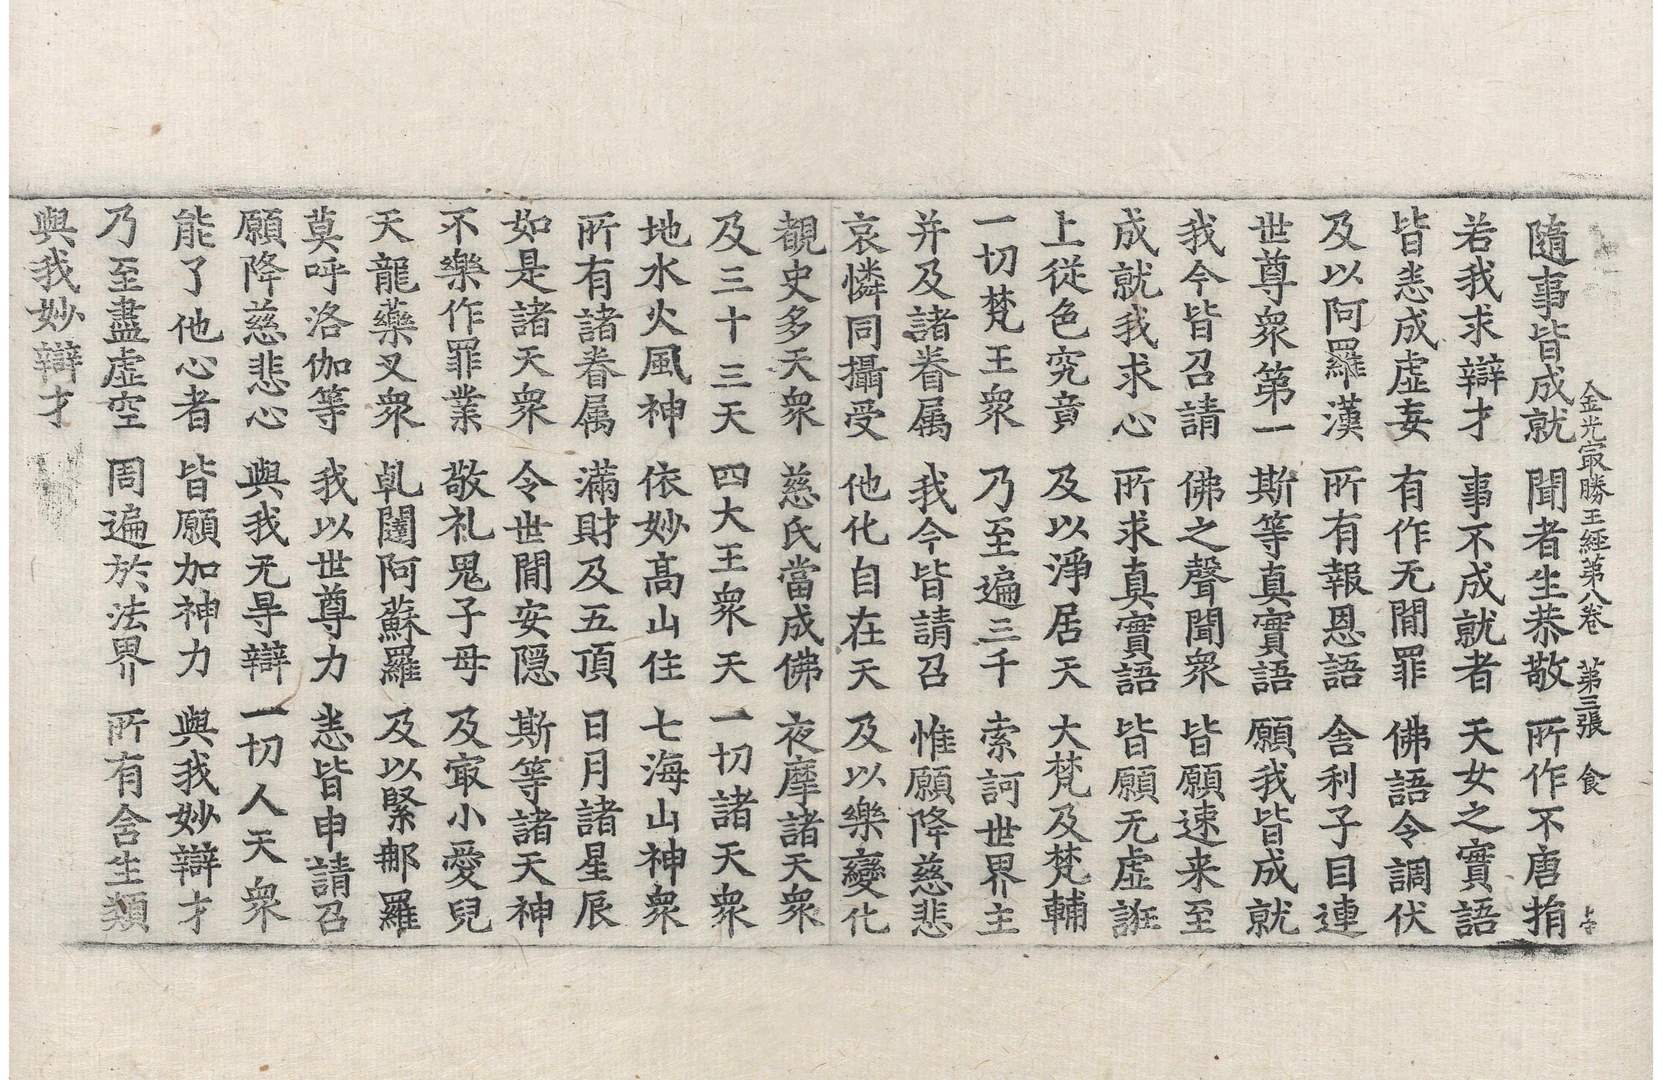 金光㝡勝王經第八卷　第三張　食
隨事皆成就　聞者生恭敬　所作不唐捐
若我求辯才　事不成就者　天女之實語
皆悉成虛妄　有作无閒罪　佛語令調伏
及以阿羅漢　所有報恩語　舍利子目連
世尊衆第一　斯等真實語　願我皆成就
我今皆召請　佛之聲聞衆　皆願速来至
成就我求心　所求真實語　皆願无虛誑
上從色究竟　及以淨居天　大梵及梵輔
一切梵王衆　乃至遍三千　索訶世界主
并及諸眷属　我今皆請召　惟願降慈悲
哀憐同攝受　他化自在天　及以樂變化
覩史多天衆　慈氏當成佛　夜摩諸天衆
及三十三天　四大王衆天　一切諸天衆
地水火風神　依妙髙山住　七海山神衆
所有諸眷属　滿財及五頂　日月諸星辰
如是諸天衆　令世閒安隠　斯等諸天神
不樂作罪業　敬礼鬼子母　及㝡小愛兒
天龍藥叉衆　乹闥阿蘇羅　及以緊𨚗羅
莫呼洛伽等　我以世尊力　悉皆申請召
願降慈悲心　與我无㝵辯　一切人天衆
能了他心者　皆願加神力　與我妙辯才
乃至盡虛空　周遍於法界　所有含生類
與我妙辯才